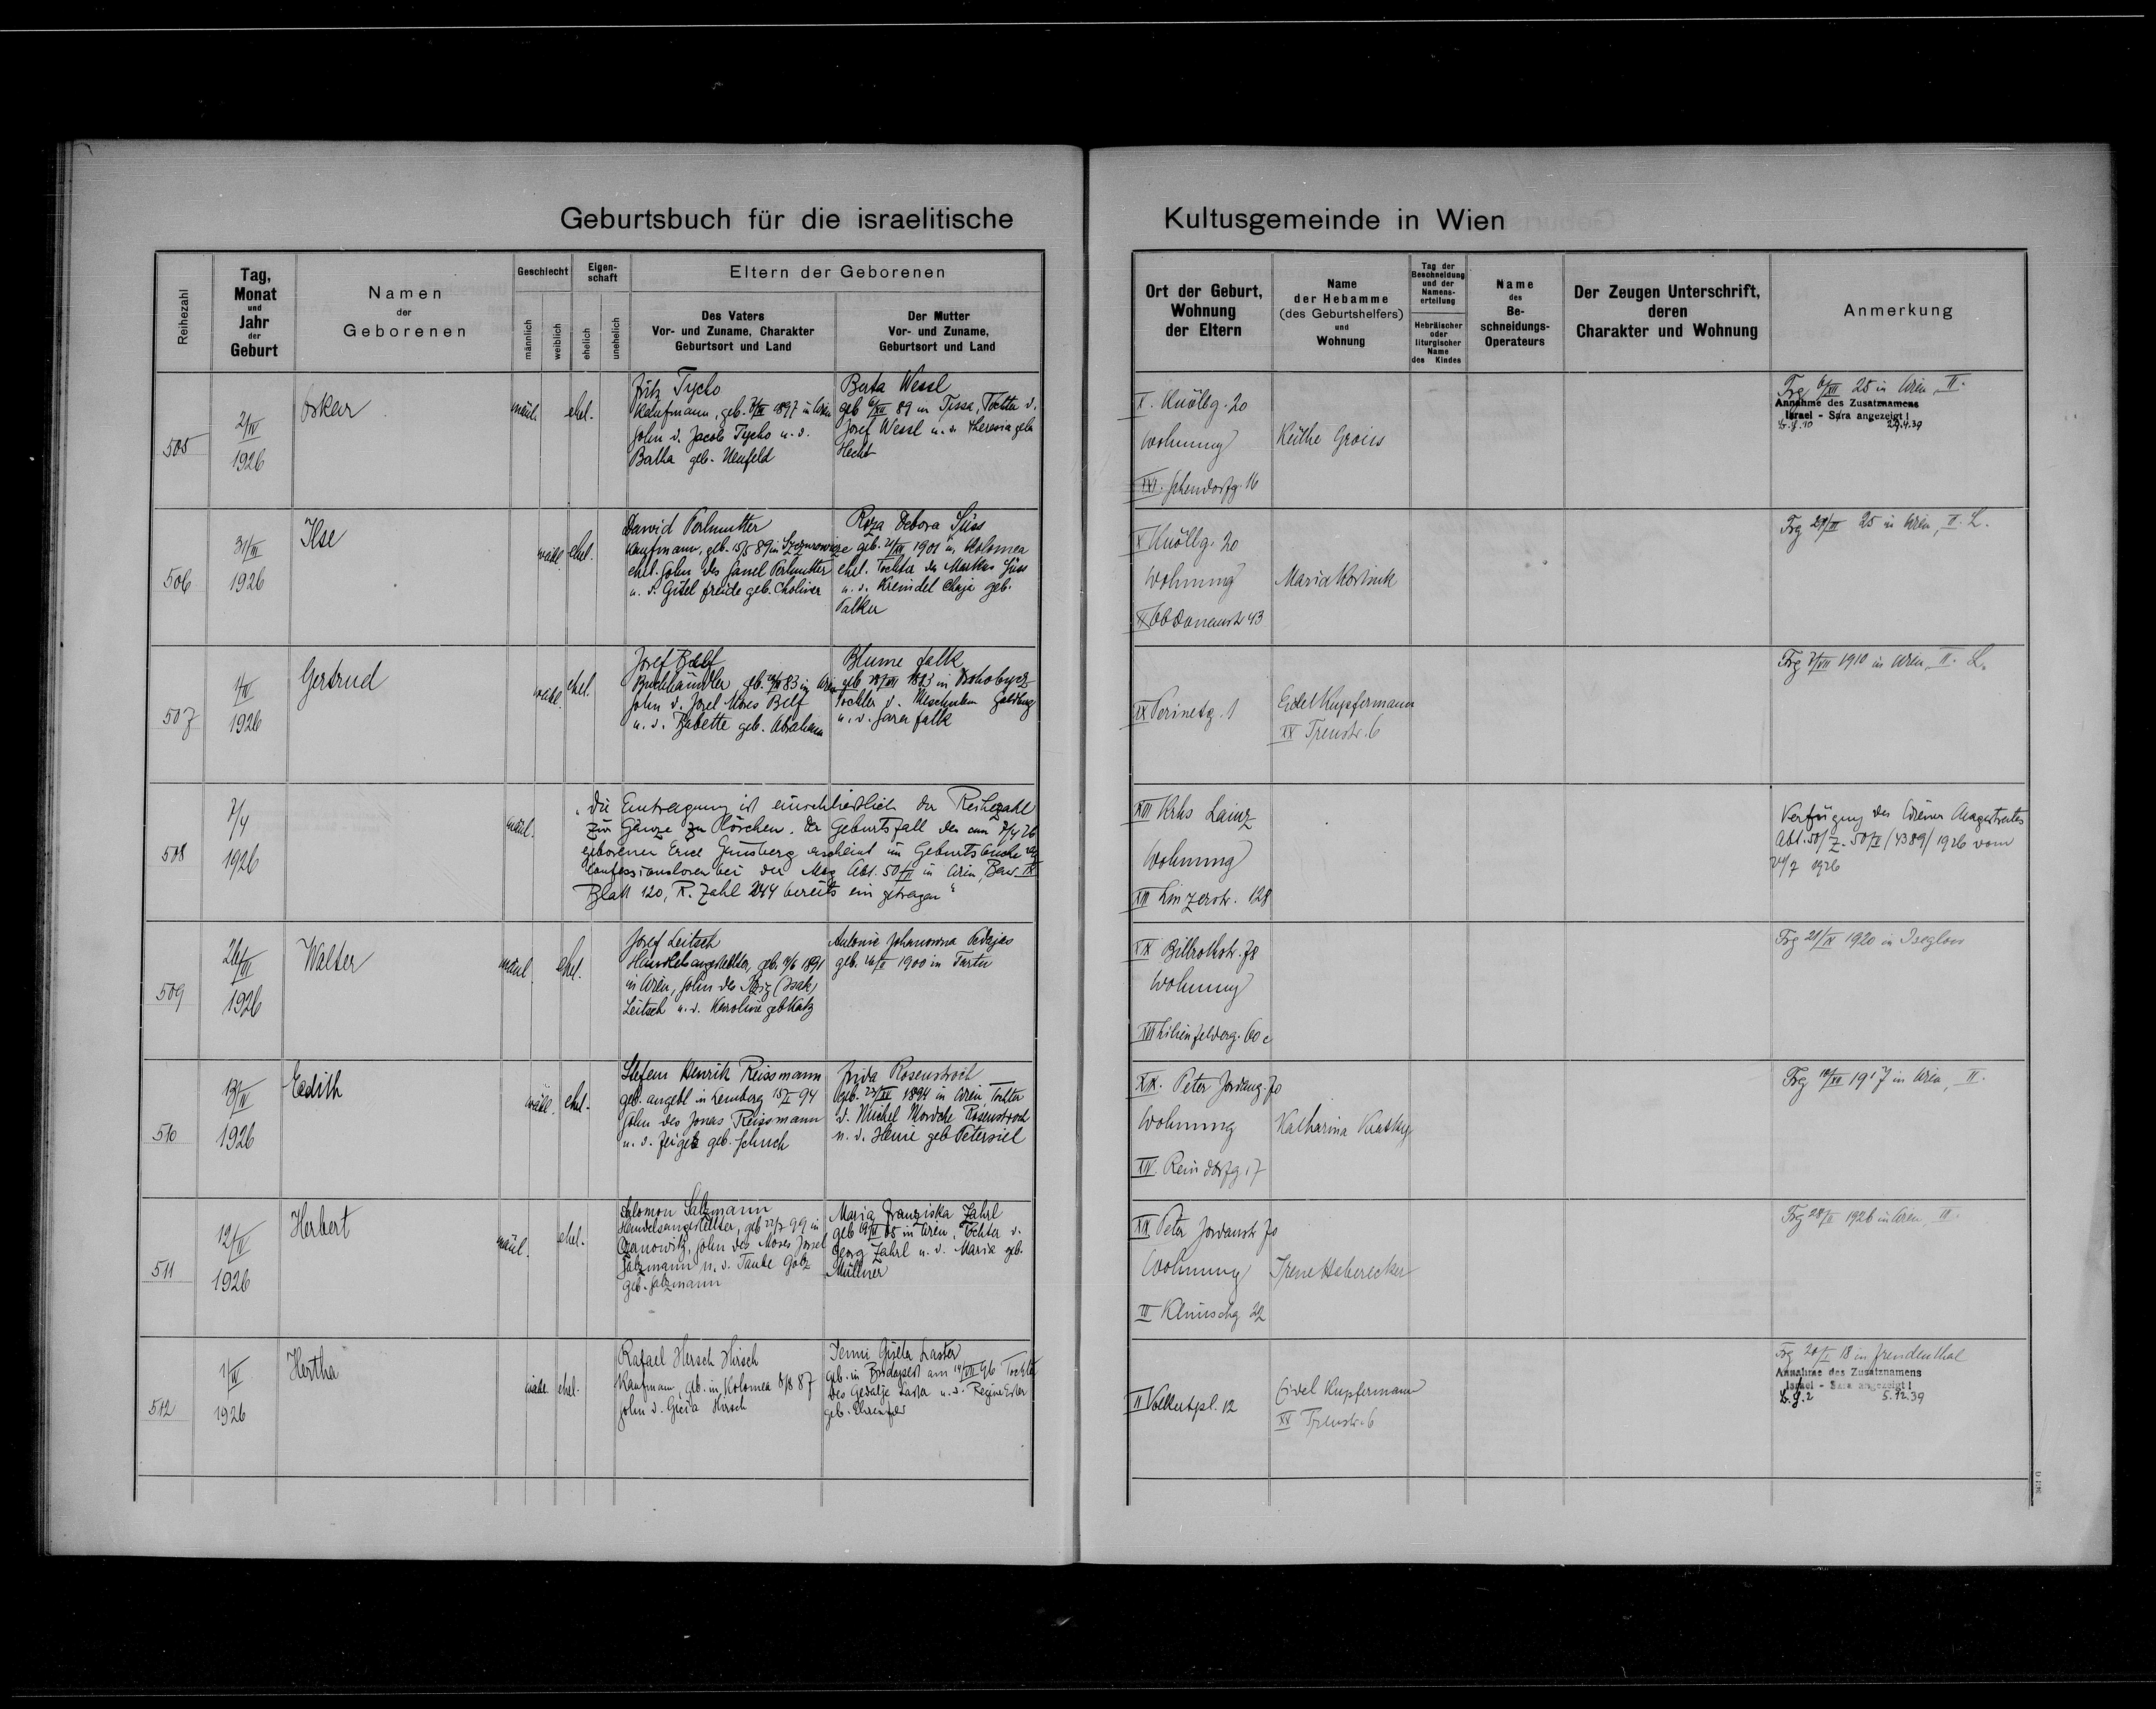 Geburtsbuch für die israelitische
Kultusgemeinde in Wien
Reihezahl
Tag,
Monat
und
Jahr
der
Geburt
Namen
der
Geborenen
Geschlecht
männlich
weiblich
Eigen-
schaft
ehelich
unehelich
Eltern der Geborenen
Des Vaters
Vor- und Zuname, Charakter
Geburtsort und Land
Der Mutter
Vor- und Zuname,
Geburtsort und Land
Ort der Geburt,
Wohnung
der Eltern
Name
der Hebamme
(des Geburtshelfers)
und
Wohnung
Tag der
Beschneidung
und der
Namens-
erteilung
Hebräischer
oder
liturgischer
Name
des Kindes
Name
des
Be-
schneidungs-
Operateurs
Der Zeugen Unterschrift,
deren
Charakter und Wohnung
Anmerkung
505
2/IV
1926
Oskar
männl.
ehel.
Fritz Tycho
Kaufmann, geb. 1897 in Wien
Sohn d. Jacob Tycho u. d.
geb. Neufeld
Berta Wessl
geb. 6/XII 89 in Tissa, Tochter d.
Josef Wessl u. d. Theresia geb.
Hecht
X. Knöllg. 20
Wohnung
XXI. 16
Käthe Groiss
Trg 6/XII 25 in Wien, II.
Annahme des Zusatznamens
Israel - Sara angezeigt!
29.4.39
506
31/III
1926
Ilse
weibl.
ehel.
Dawid Perlmutter
Kaufmann, geb. 15/5 89 in Szczurowice
ehel. Sohn des Perlmutter
u. d. Gisel Freide geb. Choliner
Roza Debora Süss
geb. 1901 in Kolomea
ehel. Tochter des Markus Süss
u. d. Kreindel Chaje geb.
Falker
X Knöllg. 20
Wohnung
43
Maria
Trg 29/III 25 in Wien, II. L.
507
1/IV
1926
Gertrud
weibl.
ehel.
Josef Belf
Buchhändler geb. 83 in Wien
Sohn d. Moses Belf
u. d. Babette geb. Abraham
Blume Falk
geb. 1883 in Drohobycz
Tochter d.
u. d. Sara Falk
XX Perinetg. 1
Eidel Kupfermann
XX 6
Trg 1910 in Wien, II. L.
508
7/4
1926
männl.
"Die Eintragung ist einschliesslich der Reihezahl
zur Gänze zu löschen. Der Geburtsfall des am 7/4 26
geborenen Erich Ginsberg erscheint im Geburtsbuche der
Confessionslosen bei der Mag. Abt. 50/II in Wien,
Blatt 120, R. Zahl 244 bereits eingetragen"
XIII Krhs Lainz
Wohnung
XIII Linzerstr. 128
Verfügung des Wiener Magistrates
Abt. 50/ Z. 50/II/4389/1926 vom
24/7 1926
509
26/III
1926
Walter
männl.
ehel.
Josef Leitsch
Handelsangestellter, geb. 1891
in Wien, Sohn des Itzig (Isak)
Leitsch u. d. Karoline geb. Katz
Antonie Johanowna Pedajas
geb. 1900 in Tartu
XIX Billrothstr. 78
Wohnung
XIII Lilienfelderg. 60 c
Trg 21/IX 1920 in
510
13/IV
1926
Edith
weibl.
ehel.
Stefan Henrik Reissmann
geb. angebl. in Lemberg 15/I 94
Sohn des Jonas Reissmann
u. d. geb. Schuch
Frida Rosenstroch
geb. 1894 in Wien, Tochter
d. Michel Mordche Rosenstroch
u. d. Henie geb. Petersiel
XIX. Peter Jordang. 70
Wohnung
XIV Reindorfg. 17
Katharina
Trg 1917 in Wien, II.
511
12/IV
1926
Herbert
männl.
ehel.
Salomon Salzmann
Handelsangestellter, geb. 99 in
Czernowitz, Sohn des Moses Josel
Salzmann u. d. Taube Golz
geb. Salzmann
Maria Franziska Zahrl
geb. in Wien, Tochter d.
Georg Zahrl u. d. Maria geb.
Müllner
XIX Peter Jordanstr. 70
Wohnung
III Klimschg. 22
Irene Haberecker
Trg 28/II 1926 in Wien, II.
512
1/IV
1926
Hertha
weibl.
ehel.
Rafael Hersch Hirsch
Kaufmann, geb. in Kolomea 8/8 87
Sohn d. Hirsch
Jenni Gisela Laster
geb. in Budapest am 14/VII 96 Tochter
des Gedalje Laster u. d. Regine Ester
geb.
II Volkertpl. 12
Eidel Kupfermann
XX 6
Trg 20/I 18 in Freudenthal
Annahme des Zusatznamens
Israel - Sara angezeigt!
5.12.39